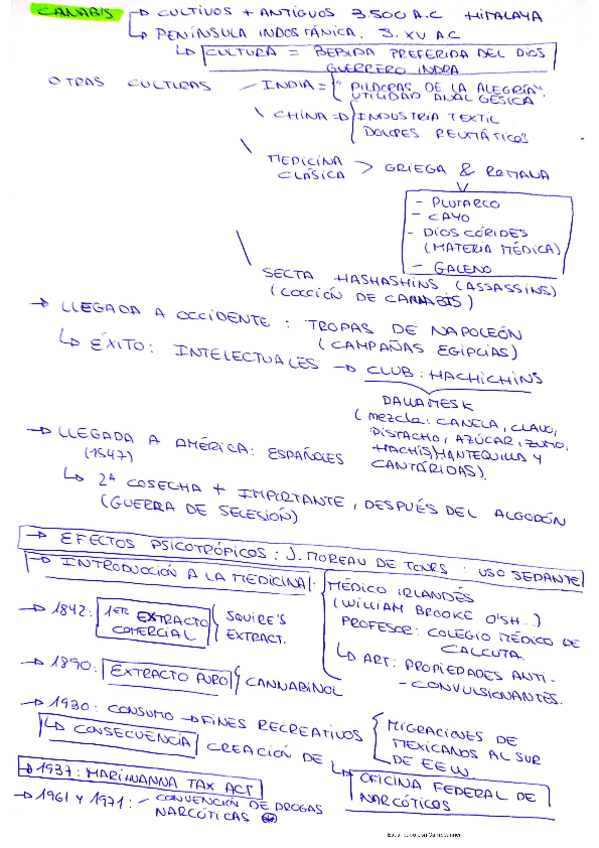 CANABIS → CULTIVOS + ANTIGUOS 3.500 A.C HIMALAYA
→ PENÍNSULA INDOSTÁNICA. S. XV AC
↳ CULTURA = BEBIDA PREFERIDA DEL DIOS
GUERRERO INDRA
OTRAS CULTURAS - INDIA = "PILDORAS DE LA ALEGRÍA".
UTILIDAD ANALGÉSICA
\ CHINA → INDUSTRIA TEXTIL
DOLORES REUMÁTICOS
\ MEDICINA
CLÁSICA > GRIEGA & ROMANA
- PLUTARCO
- CAYO
- DIOSCÓRIDES
(MATERIA MÉDICA)
- GALENO
\ SECTA HASHASHINS (ASSASSINS)
(COCCIÓN DE CANNABIS)
→ LLEGADA A OCCIDENTE: TROPAS DE NAPOLEÓN
(CAMPAÑAS EGIPCIAS)
↳ ÉXITO: INTELECTUALES → CLUB: HACHICHINS
DAWAMESK
(mezcla: CANELA, CLAVO,
PISTACHO, AZÚCAR, ZUMO,
HACHÍS, MANTEQUILLA Y
CANTÁRIDAS).
→ LLEGADA A AMÉRICA: ESPAÑOLES
(1547)
↳ 2ª COSECHA + IMPORTANTE, DESPUÉS DEL ALGODÓN
(GUERRA DE SELESIÓN)
→ EFECTOS PSICOTRÓPICOS: J. MOREAU DE TOURS: USO SEDANTE
→ INTRODUCCIÓN A LA MEDICINA: MÉDICO IRLANDÉS
(WILLIAM BROOKE O'SH...)
PROFESOR: COLEGIO MÉDICO DE
CALCUTA.
↳ ART: PROPIEDADES ANTI-
-CONVULSIONANTES.
→ 1842: 1ER EXTRACTO
COMERCIAL { SQUIRE'S
EXTRACT.
→ 1890: EXTRACTO PURO { CANNABINOL
→ 1930: CONSUMO → FINES RECREATIVOS { MIGRACIONES DE
MEXICANOS AL SUR
DE EEUU.
↳ CONSECUENCIA CREACIÓN DE
↳ OFICINA FEDERAL DE
NARCÓTICOS
→ 1937: MARIHUANNA TAX ACT
→ 1961 Y 1971: - CONVENCIÓN DE DROGAS
NARCÓTICAS